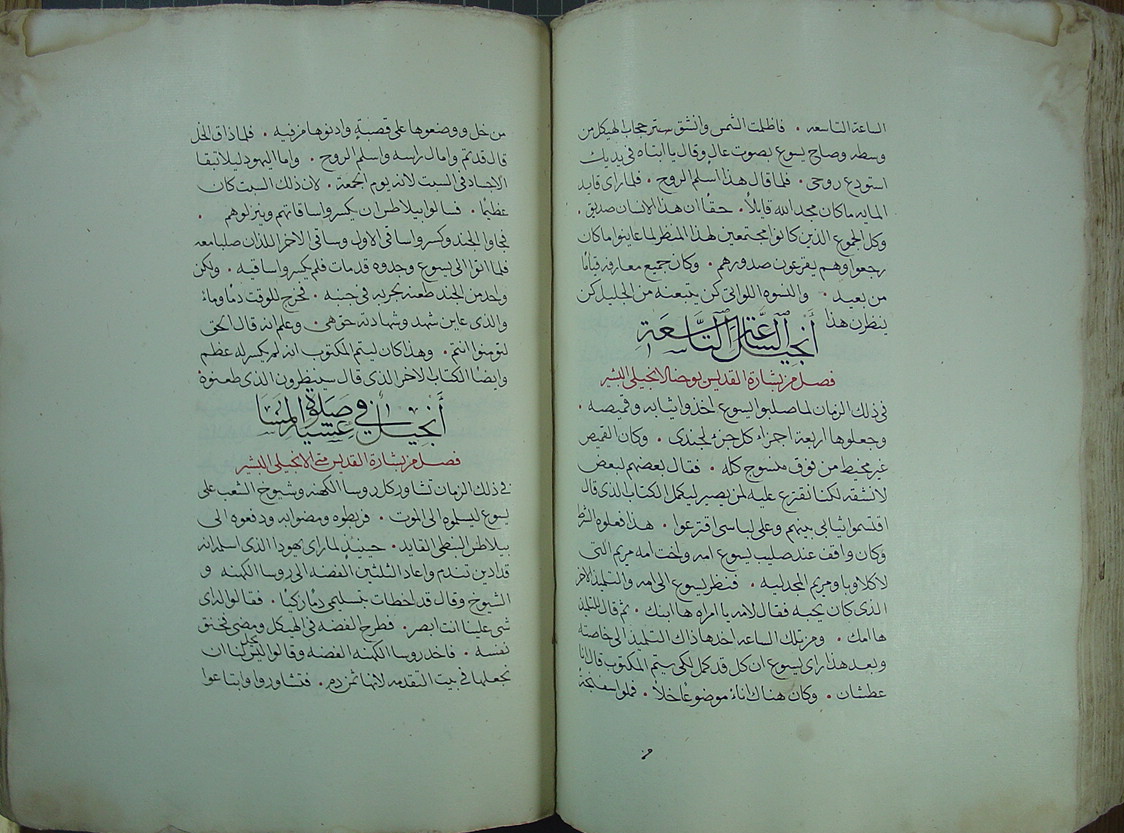 الساعة التاسعه . فاظلمت الشمس وانشق ستر حجاب الهيكل من
وسطه وصاح يسوع بصوت عال وقال يا ابتاه في يديك
استودع روحي . فلما قال هذا اسلم الروح . فلما راى قايد
المايه ما كان مجد الله قايلاً . حقاً ان هذا الانسان صديق .
وكل الجموع الذين كانوا مجتمعين لهذا المنظر لما عاينوا ما كان
رجعوا وهم يقرعون صدورهم . وكان جميع معارفه قياماً
من بعيد . والنسوه اللواتي كن يتبعنه من الجليل كن
ينظرن هذا
أنجيل الساعة التاسعة
فصل من بشارة القديس يوحنا الانجيلي البشير
في ذلك الزمان لما صلبوا يسوع اخذوا ثيابه وقميصه .
وجعلوها اربعة اجزاء كل جزء لجندي . وكان القميص
غير مخيط من فوق منسوج كله . فقال بعضهم لبعض
لا نشقه لكنا نقترع عليه لمن يصير ليكمل الكتاب الذي قال
اقتسموا ثيابي بينهم وعلى لباسي اقترعوا . هذا فعلوه الشرط
وكان واقف عند صليب يسوع امه واخت امه مريم التي
لاكلاوبا ومريم المجدليه . فنظر يسوع الى امه والتلميذ الاخر
الذي كان يحبه فقال لامه يا امراه ها ابنك . ثم قال للتلميذ
ها امك . ومن تلك الساعه اخذها ذاك التلميذ الى خاصته
وبعد هذا راى يسوع ان كل قد كمل لكي يتم المكتوب قال انا
عطشان . وكان هناك اناءً موضوعاً خلاً . فملوا سفنجة
من
من خل ووضعوها على قصبةٍ وادنوها من فيه . فلما ذاق الخل
قال قد تم وامال راسه واسلم الروح . واما اليهود ليلا تبقا
الاجساد في السبت لانه يوم الجمعة . لان ذلك السبت كان
عظيماً . فسالوا بيلاطس ان يكسروا ساقاتهم وينزلوهم .
فجاوا الجند وكسروا ساقي الاول وساقي الاخر اللذان صلبا معه
فلما اتوا الى يسوع وجدوه قد مات فلم يكسروا ساقيه . ولكن
واحد من الجند طعنه بحربه في جنبه . فخرج للوقت دمٌ وماءٌ
والذي عاين شهد وشهادته حق هي . وعلم انه قال الحق
لتومنوا انتم . وهذا كان ليتم المكتوب انه لم يكسر له عظم
وايضاً الكتاب الاخر الذي قال سينظرون الذي طعنوه
أنجيل في صلاة عشية المسا
فصل من بشارة القديس متى الانجيلي البشير
في ذلك الزمان تشاور كل روسا الكهنه وشيوخ الشعب على
يسوع ليسلموه الى الموت . فربطوه ومضوا به ودفعوه الى
بيلاطس النبطي القايد . حينيذٍ لما راى يهودا الذي اسلمه انه
قد ادين تندم واعاد الثلثين الفضه الى روسا الكهنه و
الشيوخ وقال قد اخطات بتسليمي دماً زكياً . فقالوا له اي
شي علينا انت ابصر . فطرح الفضه في الهيكل ومضى فخنق
نفسه . فاخذ روسا الكهنه الفضه وقالوا ليس يحل لنا ان
نجعلها في بيت التقدمه لانها ثمن دم . فتشاوروا وابتاعوا